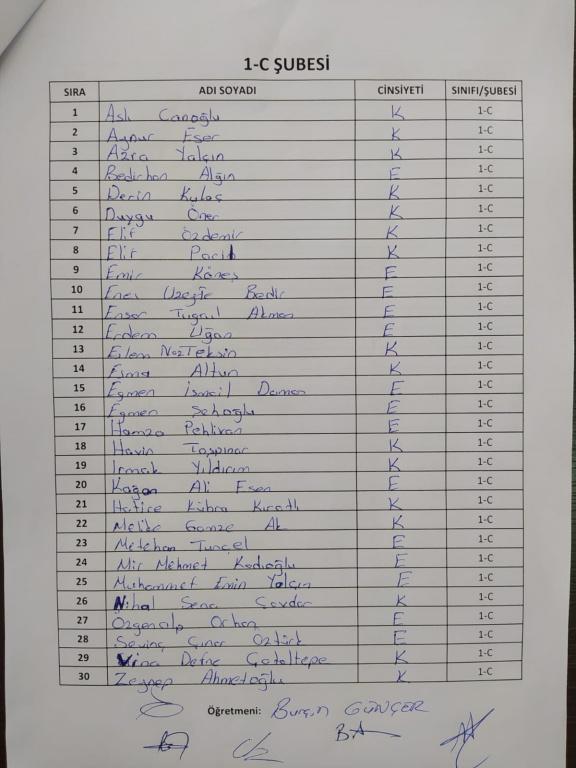 1-C ŞUBESİ
SIRA ADI SOYADI CİNSİYETİ SINIFI/ŞUBESİ
1 Aslı Canoğlu K 1-C
2 Aynur Eser K 1-C
3 Azra Yalçın K 1-C
4 Bedirhan Algın E 1-C
5 Derin Kulaç K 1-C
6 Duygu Öner K 1-C
7 Elif Özdemir K 1-C
8 Elif K 1-C
9 Emir E 1-C
10 Bedir E 1-C
11 Ensar Tuğrul Akman E 1-C
12 Erdem E 1-C
13 K 1-C
14 Altun K 1-C
15 Egmen İsmail Duman E 1-C
16 Egmen E 1-C
17 Hamza Pehlivan E 1-C
18 Havin Taşpınar K 1-C
19 Irmak Yıldırım K 1-C
20 Kağan Ali Esen E 1-C
21 Hatice Kübra Kıratlı K 1-C
22 Melike Gamze Ak K 1-C
23 Metehan Tunçel E 1-C
24 Mir Mehmet Kadıoğlu E 1-C
25 Muhammet Emin Yalçın E 1-C
26 Nihal Sena K 1-C
27 Özgenalp Orhan E 1-C
28 Sevinç Çınar Öztürk E 1-C
29 Defne Çataltepe K 1-C
30 Zeynep Ahmetoğlu K 1-C
Öğretmeni: Burçin GÜNÇER
BA